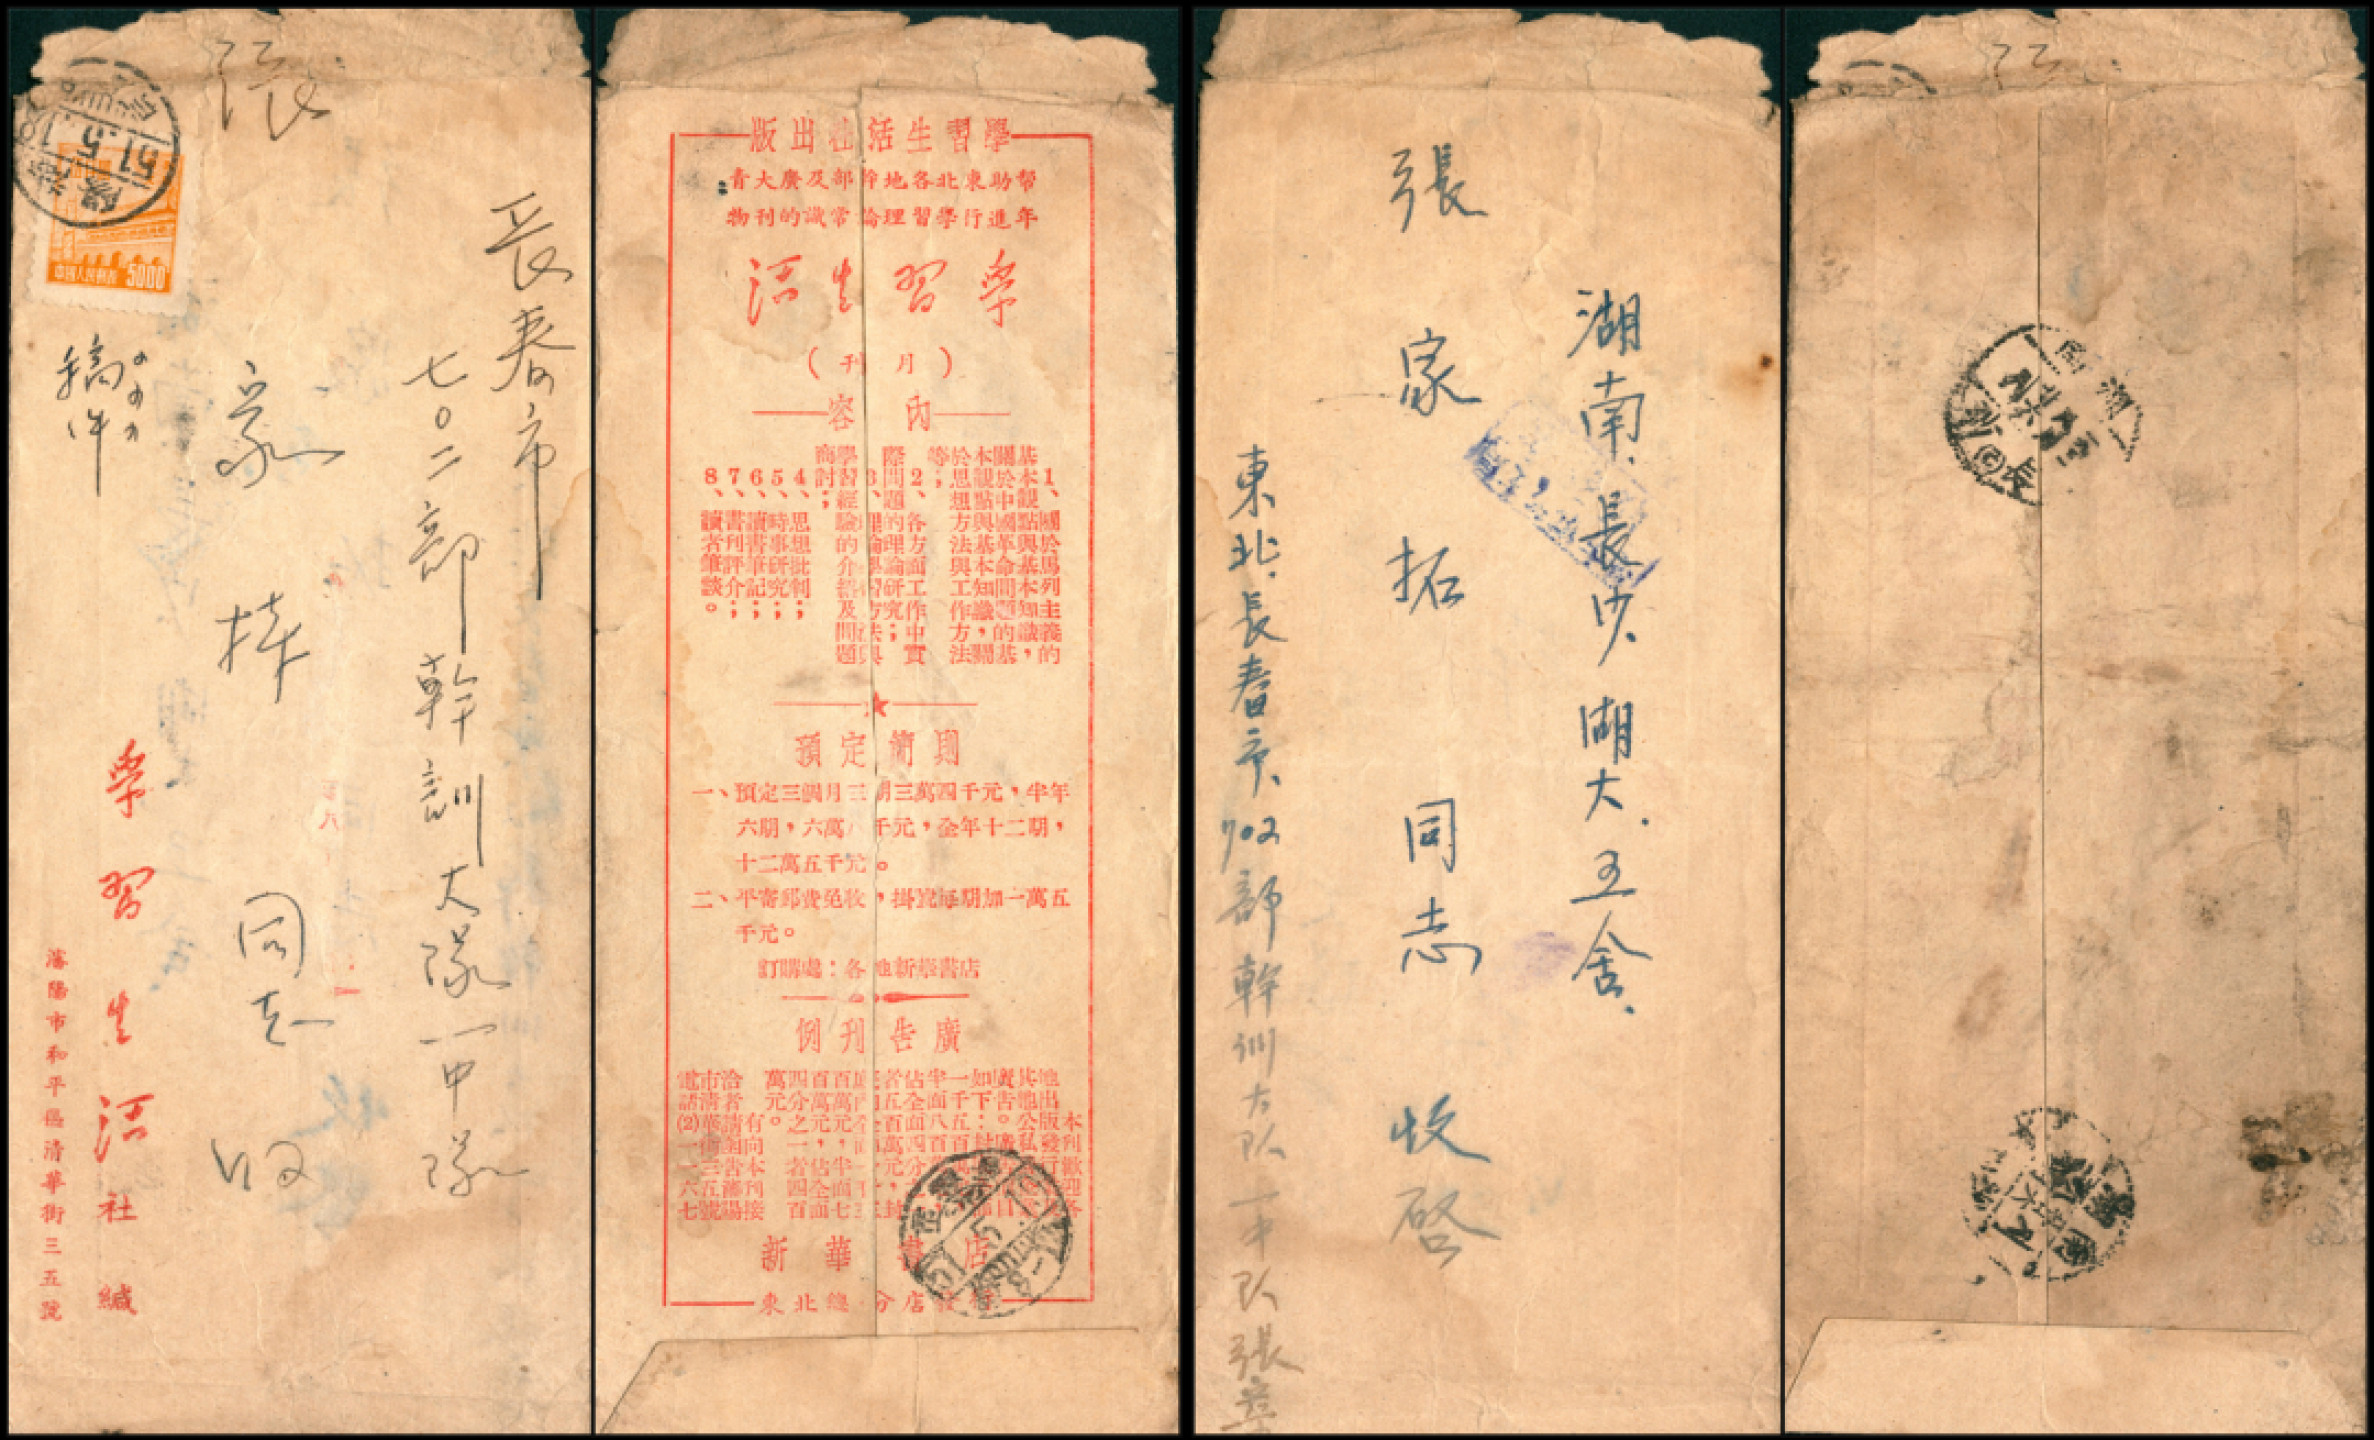 張家棒同志收
長春市
七〇二部幹訓大隊一中隊
稿件
中國人民郵政 5000
瀋陽
51.5.1
学習生活社緘
瀋陽市和平區清華街三五號
學習生活社出版
幫助東北各地幹部及廣大青
年進行學習理論常識的刊物:
学習生活
(月刊)
內容
1、關於馬列主義的
基本觀點與基本知識,
關於中國革命問題的基
本觀點與基本知識,關
於思想方法與工作方法
等;
2、各方面工作中實
際問題的理論研究;
3、理論學習方法與
學習經驗的介紹及問題
商討;
4、思想批判;
5、時事研究;
6、讀書筆記;
7、書刊評介;
8、讀者筆談。
預定簡則
一、預定三個月三期三萬四千元,半年
六期,六萬八千元,全年十二期,
十二萬五千元。
二、平寄郵費免收,掛號每期加一萬五
千元。
訂購處:各地新華書店
廣告刊例
本刊歡迎各
地出版發行
如下:封
萬元。
有向本刊接
洽者請函告瀋陽
市清華街三五號
電話(2)一一六七
新華書店
東北總分店發行
51.5
湖南.長沙.湖大.五舍.
張家拓同志收啓
東北.長春市.702部幹訓大队一中队張
湖南
長